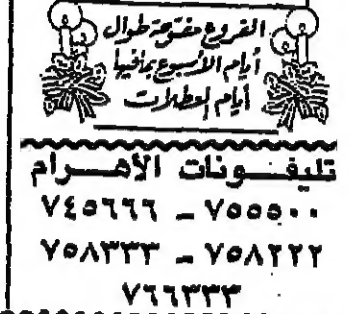 الفروع مفتوحة طوال
أيام الأسبوع بما فيها
أيام العطلات
تليفونات الأهرام
٧٥٥٥٠٠ - ٧٤٥٦٦٦
٧٥٨٢٢٢ - ٧٥٨٣٣٣
٧٦٦٣٣٣